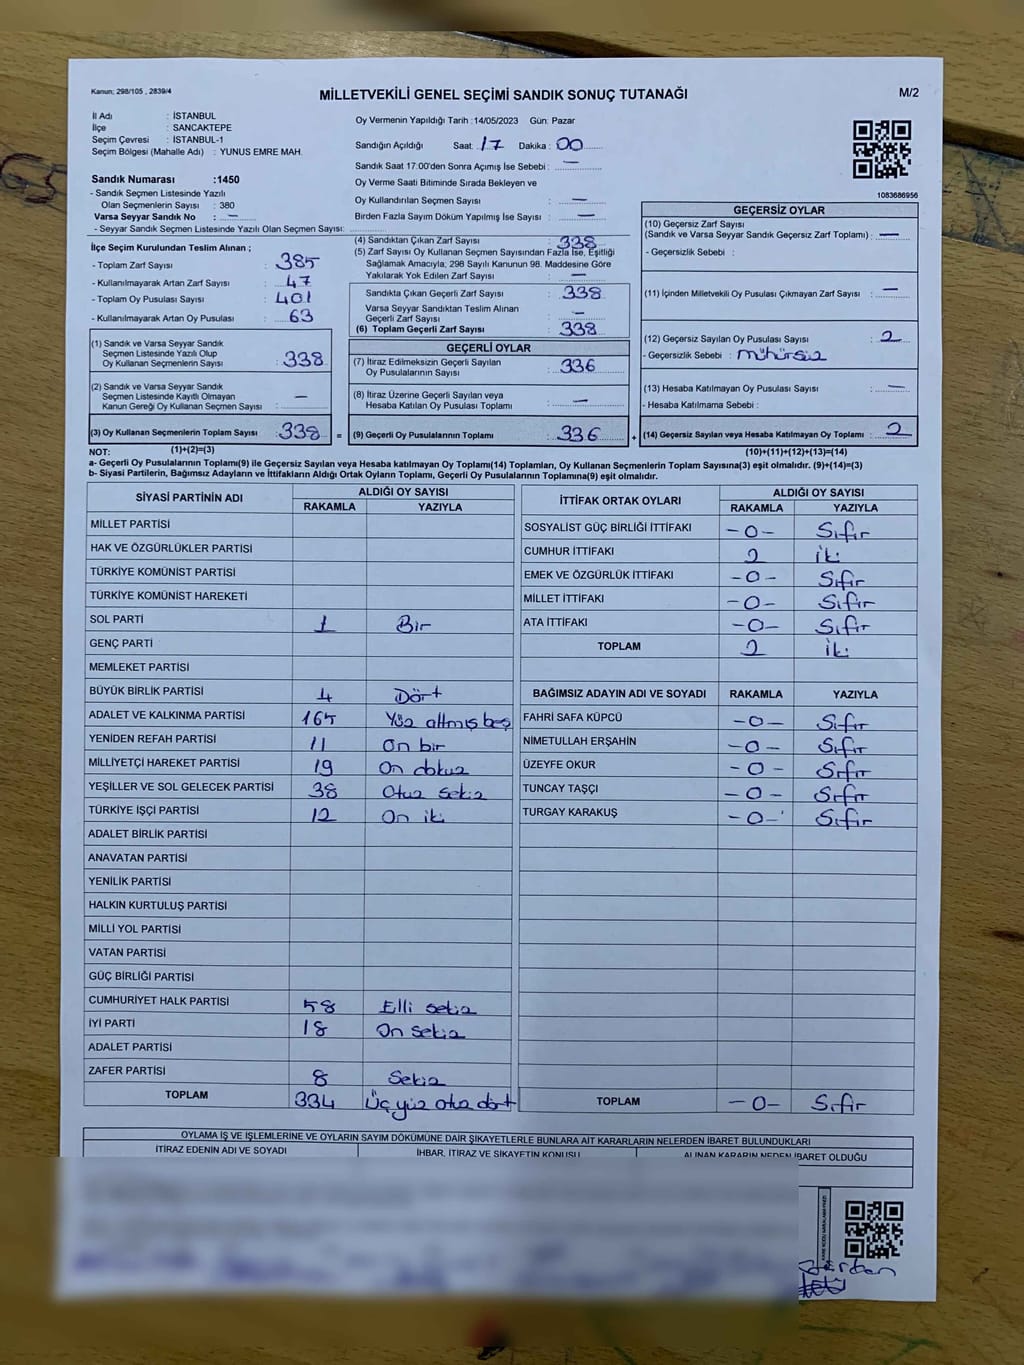 Kanun; 298/105 , 2839/4
MİLLETVEKİLİ GENEL SEÇİMİ SANDIK SONUÇ TUTANAĞI
M/2
İl Adı : İSTANBUL
İlçe : SANCAKTEPE
Seçim Çevresi : İSTANBUL-1
Seçim Bölgesi (Mahalle Adı) : YUNUS EMRE MAH.
Oy Vermenin Yapıldığı Tarih :14/05/2023 Gün: Pazar
Sandığın Açıldığı Saat: 17 Dakika : 00
Sandık Saat 17:00'den Sonra Açımış İse Sebebi : —
Oy Verme Saati Bitiminde Sırada Bekleyen ve
Oy Kullandırılan Seçmen Sayısı : —
Birden Fazla Sayım Döküm Yapılmış İse Sayısı : —
1083686956
Sandık Numarası :1450
- Sandık Seçmen Listesinde Yazılı
Olan Seçmenlerin Sayısı : 380
Varsa Seyyar Sandık No : —
- Seyyar Sandık Seçmen Listesinde Yazılı Olan Seçmen Sayısı:
İlçe Seçim Kurulundan Teslim Alınan ;
- Toplam Zarf Sayısı : 385
- Kullanılmayarak Artan Zarf Sayısı : 47
- Toplam Oy Pusulası Sayısı : 401
- Kullanılmayarak Artan Oy Pusulası : 63
(1) Sandık ve Varsa Seyyar Sandık
Seçmen Listesinde Yazılı Olup
Oy Kullanan Seçmenlerin Sayısı : 338
(2) Sandık ve Varsa Seyyar Sandık
Seçmen Listesinde Kayıtlı Olmayan
Kanun Gereği Oy Kullanan Seçmen Sayısı : —
(3) Oy Kullanan Seçmenlerin Toplam Sayısı : 338 =
(4) Sandıktan Çıkan Zarf Sayısı : 338
(5) Zarf Sayısı Oy Kullanan Seçmen Sayısından Fazla İse, Eşitliği
Sağlamak Amacıyla; 298 Sayılı Kanunun 98. Maddesine Göre
Yakılarak Yok Edilen Zarf Sayısı : —
Sandıkta Çıkan Geçerli Zarf Sayısı : 338
Varsa Seyyar Sandıktan Teslim Alınan
Geçerli Zarf Sayısı : —
(6) Toplam Geçerli Zarf Sayısı : 338
GEÇERLİ OYLAR
(7) İtiraz Edilmeksizin Geçerli Sayılan
Oy Pusulalarının Sayısı : 336
(8) İtiraz Üzerine Geçerli Sayılan veya
Hesaba Katılan Oy Pusulası Toplamı : —
(9) Geçerli Oy Pusulalarının Toplamı : 336 +
GEÇERSİZ OYLAR
(10) Geçersiz Zarf Sayısı
(Sandık ve Varsa Seyyar Sandık Geçersiz Zarf Toplamı) : —
- Geçersizlik Sebebi :
(11) İçinden Milletvekili Oy Pusulası Çıkmayan Zarf Sayısı : —
(12) Geçersiz Sayılan Oy Pusulası Sayısı : 2
- Geçersizlik Sebebi : mühürsüz
(13) Hesaba Katılmayan Oy Pusulası Sayısı : —
- Hesaba Katılmama Sebebi :
(14) Geçersiz Sayılan veya Hesaba Katılmayan Oy Toplamı : 2
NOT: (1)+(2)=(3) (10)+(11)+(12)+(13)=(14)
a- Geçerli Oy Pusulalarının Toplamı(9) ile Geçersiz Sayılan veya Hesaba katılmayan Oy Toplamı(14) Toplamları, Oy Kullanan Seçmenlerin Toplam Sayısına(3) eşit olmalıdır. (9)+(14)=(3)
b- Siyasi Partilerin, Bağımsız Adayların ve İttifakların Aldığı Ortak Oyların Toplamı, Geçerli Oy Pusulalarının Toplamına(9) eşit olmalıdır.
SİYASİ PARTİNİN ADI ALDIĞI OY SAYISI
RAKAMLA YAZIYLA
MİLLET PARTİSİ
HAK VE ÖZGÜRLÜKLER PARTİSİ
TÜRKİYE KOMÜNİST PARTİSİ
TÜRKİYE KOMÜNİST HAREKETİ
SOL PARTİ 1 Bir
GENÇ PARTİ
MEMLEKET PARTİSİ
BÜYÜK BİRLİK PARTİSİ 4 Dört
ADALET VE KALKINMA PARTİSİ 165 Yüz altmış beş
YENİDEN REFAH PARTİSİ 11 On bir
MİLLİYETÇİ HAREKET PARTİSİ 19 On dokuz
YEŞİLLER VE SOL GELECEK PARTİSİ 38 Otuz sekiz
TÜRKİYE İŞÇİ PARTİSİ 12 On iki
ADALET BİRLİK PARTİSİ
ANAVATAN PARTİSİ
YENİLİK PARTİSİ
HALKIN KURTULUŞ PARTİSİ
MİLLİ YOL PARTİSİ
VATAN PARTİSİ
GÜÇ BİRLİĞİ PARTİSİ
CUMHURİYET HALK PARTİSİ 58 Elli sekiz
İYİ PARTİ 18 On sekiz
ADALET PARTİSİ
ZAFER PARTİSİ 8 Sekiz
TOPLAM 334 Üç yüz otuz dört
İTTİFAK ORTAK OYLARI ALDIĞI OY SAYISI
RAKAMLA YAZIYLA
SOSYALİST GÜÇ BİRLİĞİ İTTİFAKI -0- Sıfır
CUMHUR İTTİFAKI 2 iki
EMEK VE ÖZGÜRLÜK İTTİFAKI -0- Sıfır
MİLLET İTTİFAKI -0- Sıfır
ATA İTTİFAKI -0- Sıfır
TOPLAM 2 iki
BAĞIMSIZ ADAYIN ADI VE SOYADI RAKAMLA YAZIYLA
FAHRİ SAFA KÜPCÜ -0- Sıfır
NİMETULLAH ERŞAHİN -0- Sıfır
ÜZEYFE OKUR -0- Sıfır
TUNCAY TAŞÇI -0- Sıfır
TURGAY KARAKUŞ -0- Sıfır
TOPLAM -0- Sıfır
OYLAMA İŞ VE İŞLEMLERİNE VE OYLARIN SAYIM DÖKÜMÜNE DAİR ŞİKAYETLERLE BUNLARA AİT KARARLARIN NELERDEN İBARET BULUNDUKLARI
İTİRAZ EDENİN ADI VE SOYADI İHBAR, İTİRAZ VE ŞİKAYETİN KONUSU ALINAN KARARIN NEDEN İBARET OLDUĞU